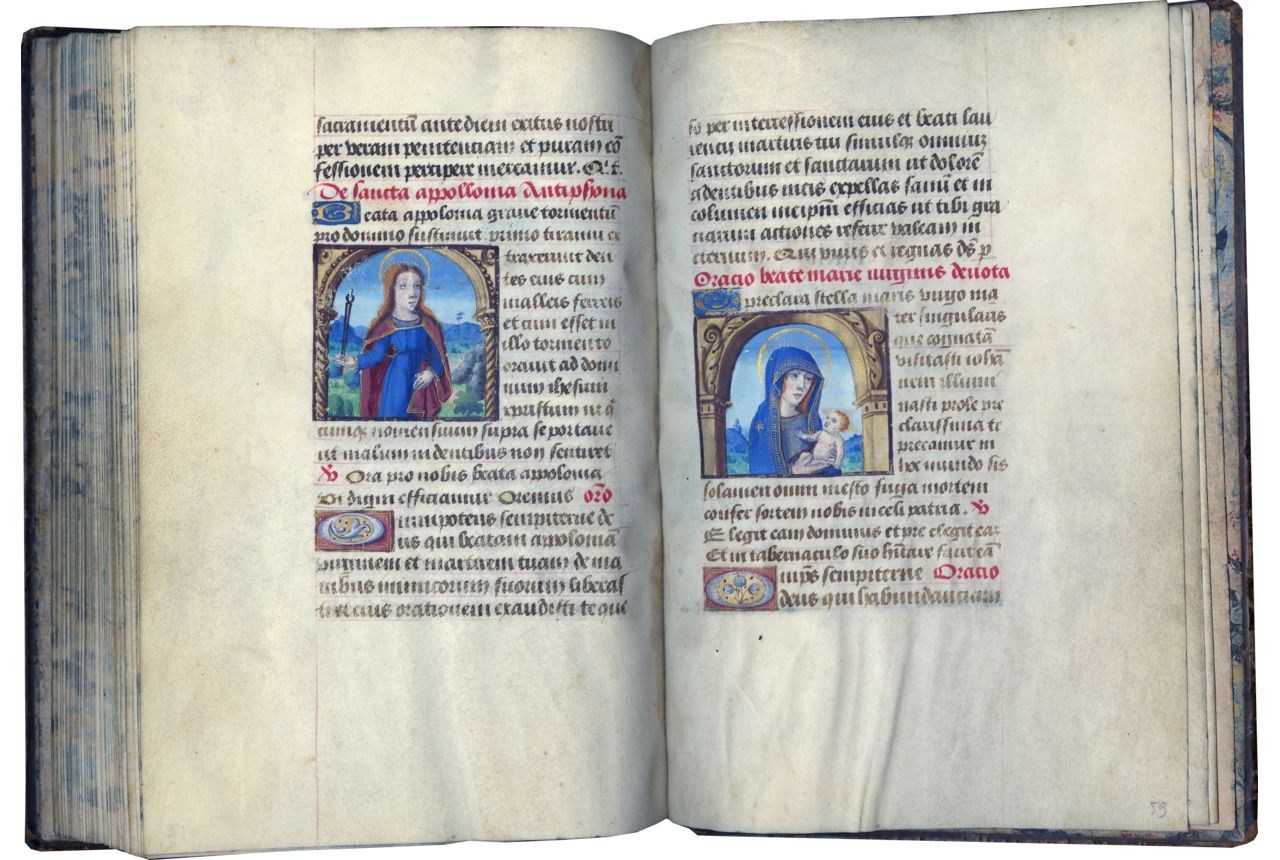 sacramentū ante diem exitus nostri
per veram penitentiam et puram cō
fessionem percipere mereamur. Q
De sancta appollonia Antiphona
Beata appolonia grave tormentū
pro domino sustinuit primo tiranni ex
traxerunt den
tes eius cum
malleis ferreis
et cum esset in
illo tormento
oravit ad domi
num ihesum
xpristum ut q̄
cumq nomen suum supra se portaret
ut malum in dentibus non sentiret
℣ Ora pro nobis beata appolonia
Vt digni efficiamur Oremus orō
Omnipotens sempiterne de
us qui beatam appoloniā
virginem et martirem tuam de ma
nibus inimicorum suorum liberas
ti et eius orationem exaudisti te que
so per intercessionem eius et beati lau
rencii martiris tui simulq omniuz
sanctorum et sanctarum ut dolorē
a dentibus meis expellas sanū et in
columen me ipm̄ efficias ut tibi gra
tiarum actiones referre valeam in
eternum. Qui vivis et regnas ds̄ p
Oracio beate marie virginis devota
O preclara stella maris virgo ma
ter singularis
que cognatā
visitasti iohā
nem illumi
nasti prole pre
clarissima te
precamur in
hoc mundo sis
solamen omni mesto fuga mortem
confer sortem nobis in celi patria. ℣
Elegit eam dominus et pre elegit eaz
Et in tabernaculo suo hītare facit eā
Omps̄ sempiterne Oracio
deus qui habundanciam
59